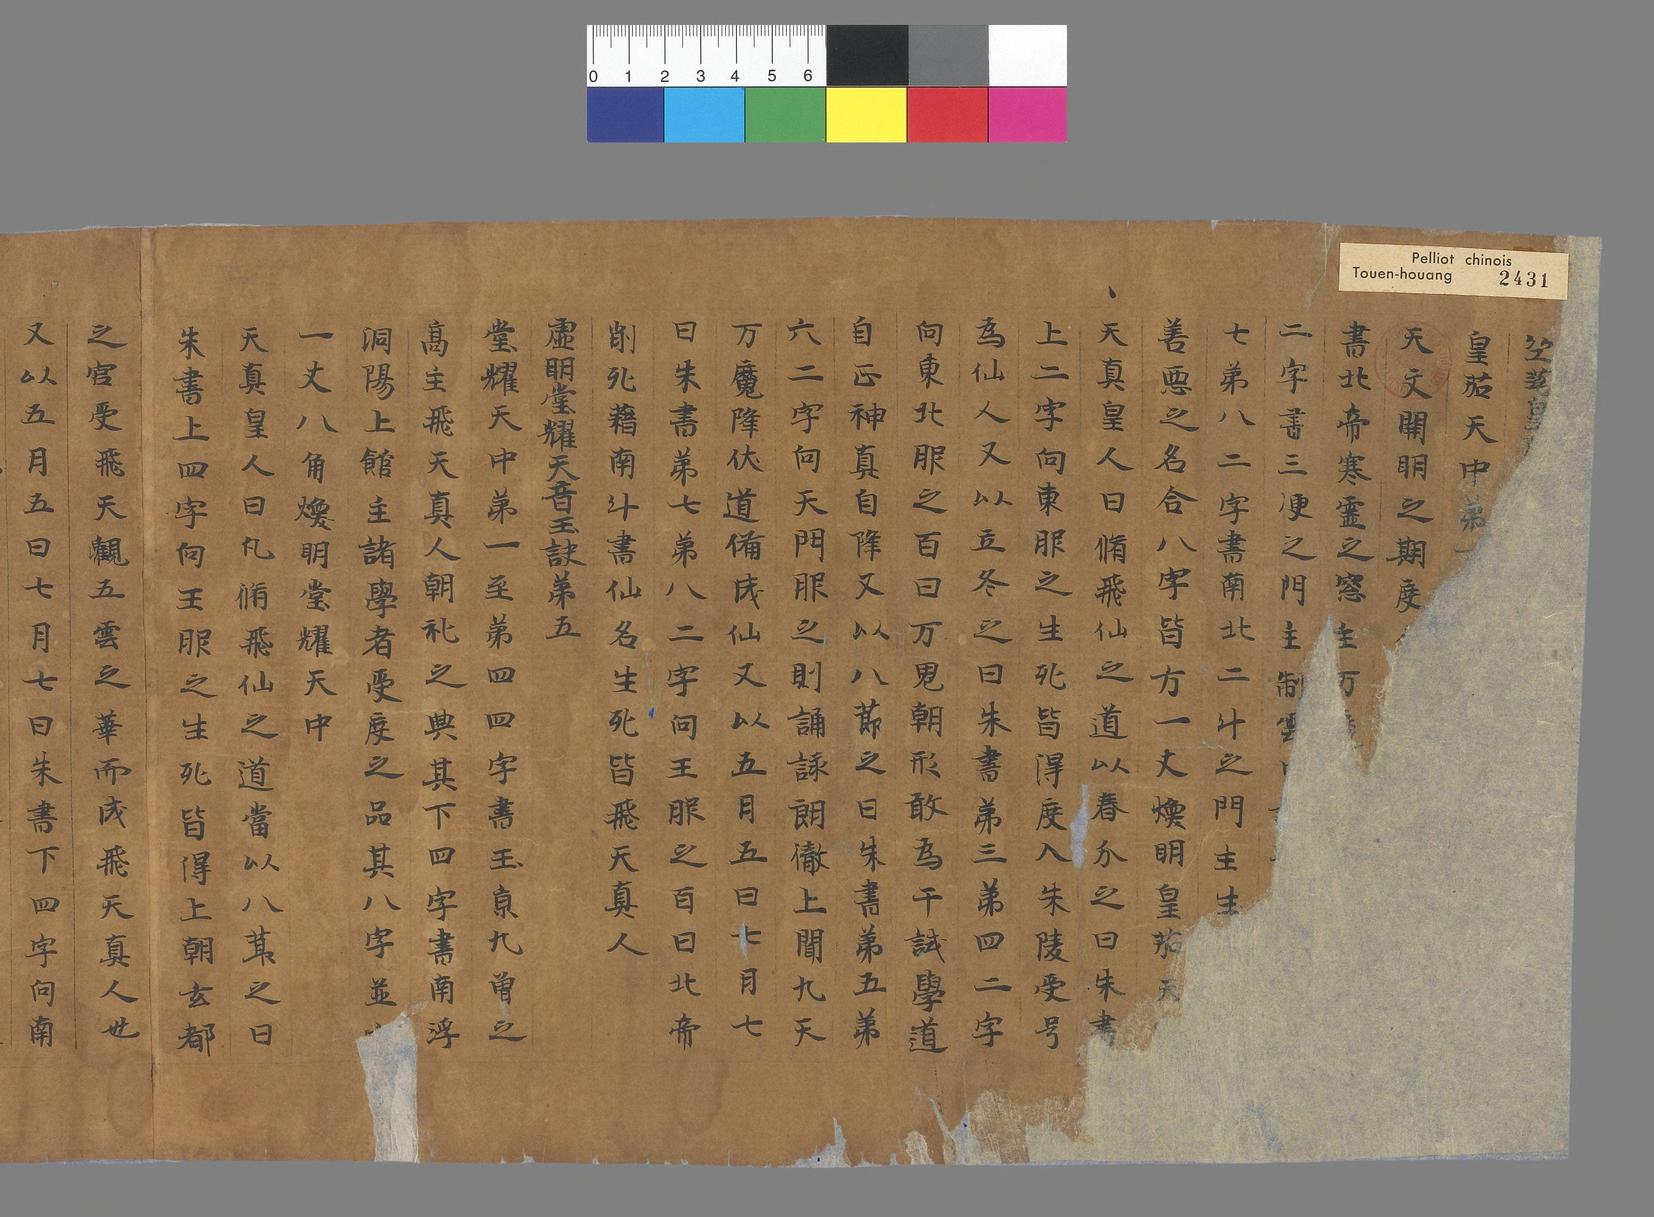 0 1 2 3 4 5 6
Pelliot chinois
Touen-houang 2431
皇
皇茄天中弟
天文開明之期度
書北帝寒靈之窓主万
二字書三洞之門主制雲
七弟八二字書南北二斗之門主生
善惡之名合八字皆方一丈煥明皇茄天
天真皇人曰脩飛仙之道以春分之日朱書
上二字向東服之生死皆得度入朱陵受号
為仙人又以立冬之日朱書弟三弟四二字
向東北服之百日万鬼朝形敢為干試學道
自正神真自降又以八節之日朱書弟五弟
六二字向天門服之則誦詠朗徹上聞九天
万魔降伏道備成仙又以五月五日七月七
日朱書弟七弟八二字向王服之百日北帝
削死藉南斗書仙名生死皆飛天真人
虛明堂耀天音玉訣弟五
堂耀天中弟一至弟四四字書玉京九曾之
髙主飛天真人朝礼之典其下四字書南浮
洞陽上館主諸學者受度之品其八字並
一丈八角煥明堂耀天中
天真皇人曰凡脩飛仙之道當以八茛之日
朱書上四字向王服之生死皆得上朝玄都
之宮受飛天觀五雲之華而成飛天真人也
又以五月五日七月七日朱書下四字向南